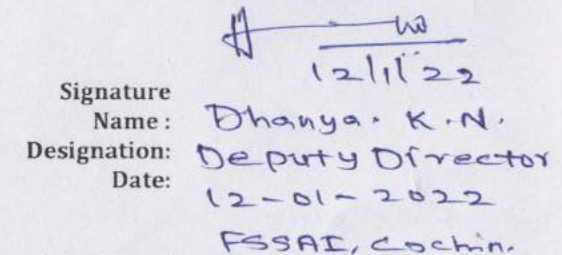 12/1/22
Signature
Name: Dhanya. K.N.
Designation: Deputy Director
Date: 12-01-2022
FSSAI, Cochin.